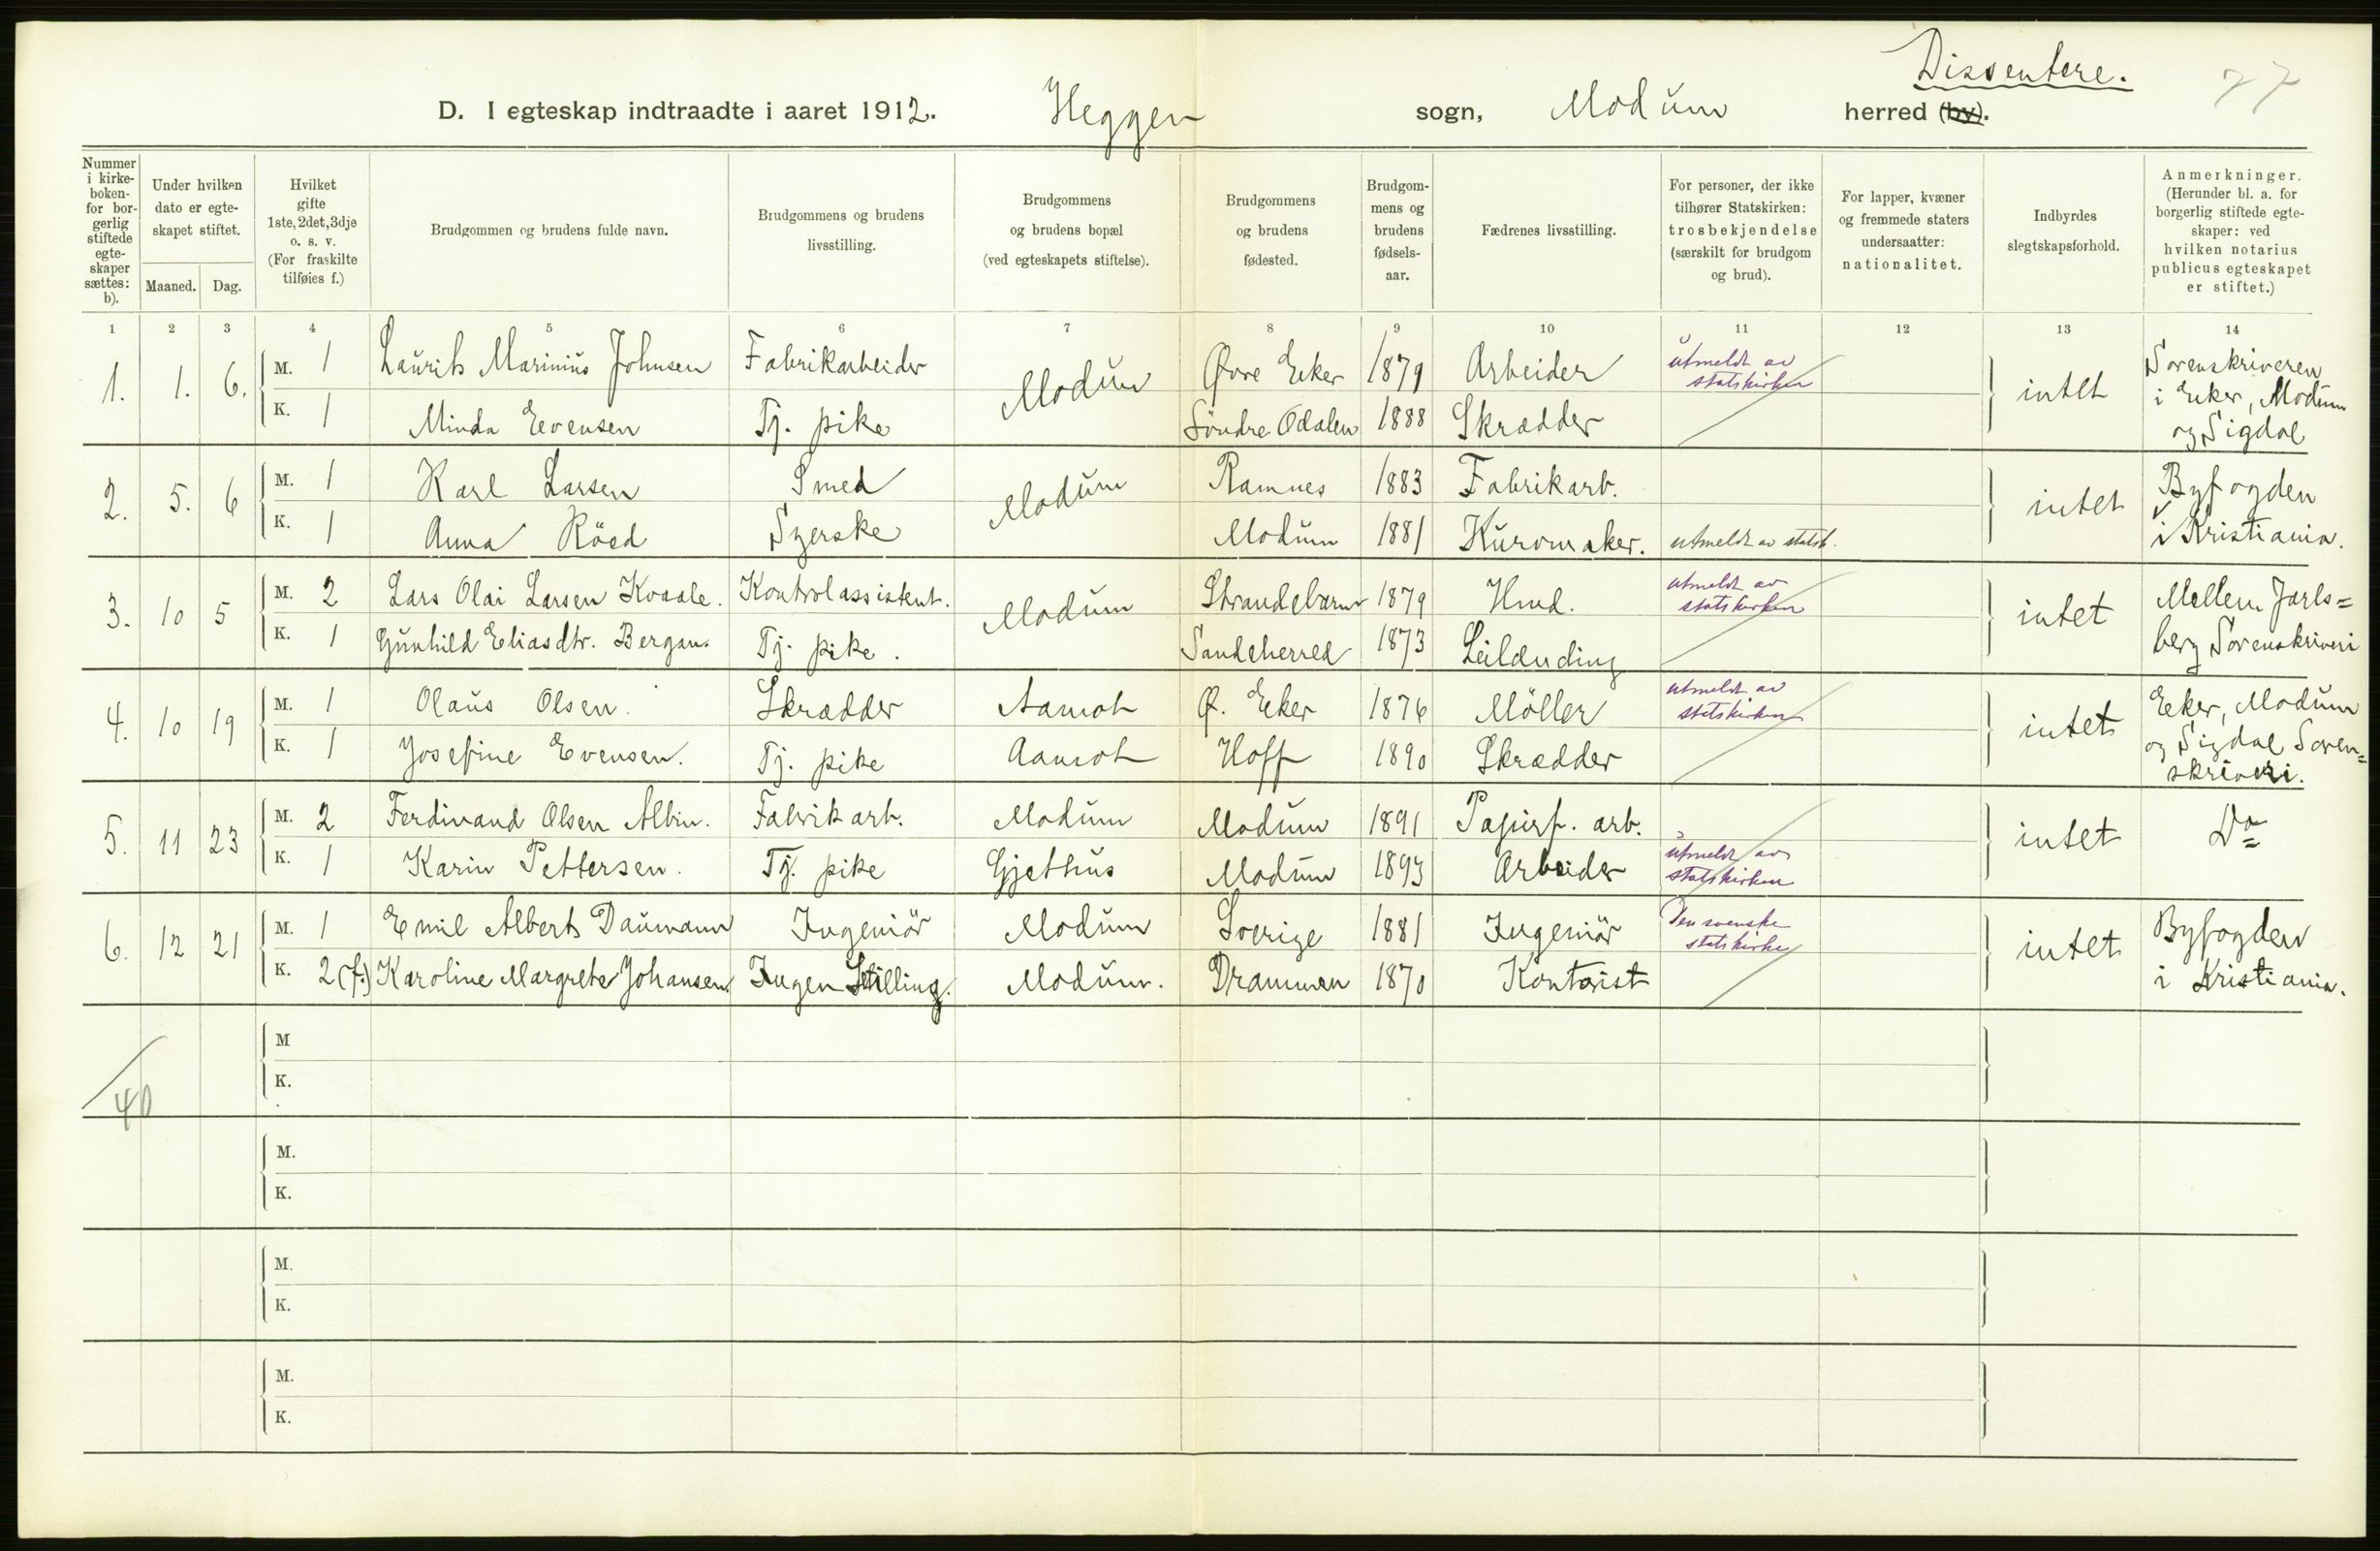 Dissentere.
77
D. I egteskap indtraadte i aaret 1912. Heggen sogn, Modum herred (by).
Nummer i kirkeboken- for borgerlig stiftede egteskaper sættes: b).
Under hvilken dato er egteskapet stiftet.
Maaned. Dag.
Hvilket gifte 1ste, 2det, 3dje o. s. v. (For fraskilte tilføies f.)
Brudgommen og brudens fulde navn.
Brudgommens og brudens livsstilling.
Brudgommens og brudens bopæl (ved egteskapets stiftelse).
Brudgommens og brudens fødested.
Brudgommens og brudens fødselsaar.
Fædrenes livsstilling.
For personer, der ikke tilhører Statskirken: trosbekjendelse (særskilt for brudgom og brud).
For lapper, kvæner og fremmede staters undersaatter: nationalitet.
Indbyrdes slegtskapsforhold.
Anmerkninger. (Herunder bl. a. for borgerlig stiftede egteskaper: ved hvilken notarius publicus egteskapet er stiftet.)
1 2 3 4 5 6 7 8 9 10 11 12 13 14
1. 1. 6. M. 1 Laurits Marinius Johnsen Fabrikarbeider Modum Øvre Eker 1879 Arbeider utmeldt av statskirken intet Sorenskriveren i Eker, Modum og Sigdal
K. 1 Minda Evensen Tj. pike Söndre Odalen 1888 Skrædder
2. 5. 6 M. 1 Karl Larsen Smed Modum Ramnes 1883 Fabrikarb. intet Byfogden i Kristiania.
K. 1 Anna Röed Syerske Modum 1881 Kurvmaker. utmeldt av statsk.
3. 10 5 M. 2 Lars Olai Larsen Kvaale. Kontrolassistent. Modum Strandebarm 1879 Hmd. utmeldt av statskirken intet Mellem Jarlsberg Sorenskriveri
K. 1 Gunhild Eliasdtr. Bergan. Tj. pike. Sandeherred 1873 Leilænding
4. 10 19 M. 1 Olaus Olsen. Skrædder Aamot Ø. Eker 1876 Möller utmeldt av statskirken intet Eker, Modum og Sigdal Sorenskriveri.
K. 1 Josefine Evensen. Tj. pike Aamot Hoff 1890 Skrædder
5. 11 23 M. 2 Ferdinand Olsen Albin. Fabrikarb. Modum Modum 1891 Papirf. arb. intet Do
K. 1 Karin Pettersen. Tj. pike Gjethus Modum 1893 Arbeider utmeldt av statskirken
6. 12 21 M. 1 Emil Albert Daumann Ingeniör Modum Sverige 1881 Ingeniör Den svenske statskirke intet Byfogden i Kristiania.
K. 2 (f.) Karoline Margrete Johansen. Ingen Stilling. Modum. Drammen 1870 Kontorist
M
K.
40
M.
K.
M.
K.
M.
K.